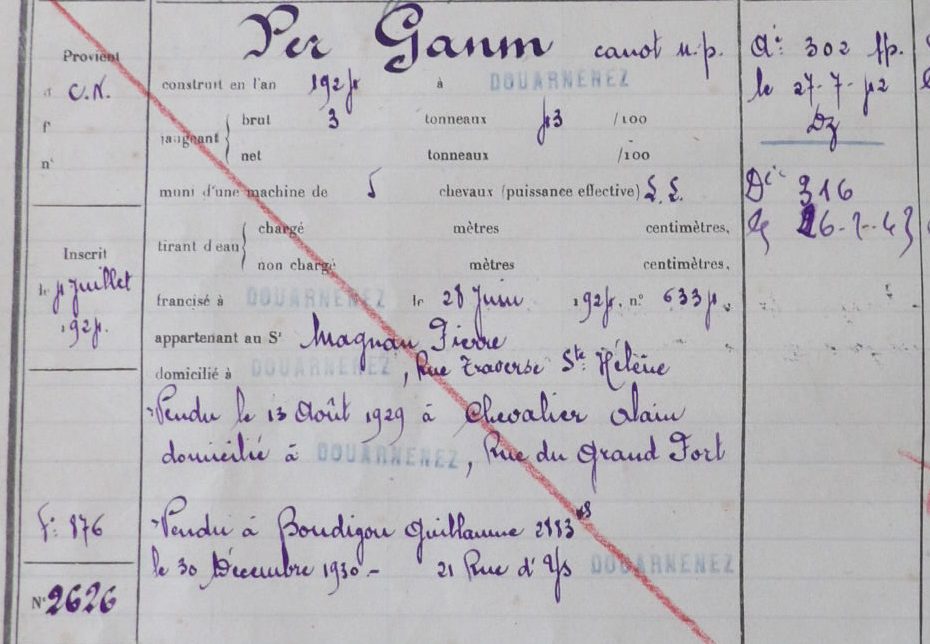 Per Ganm canot n.p.
Provient
d C.N.
f°
n°
construit en l'an 1924 à DOUARNENEZ
jaugeant brut 3 tonneaux 43 /100
net tonneaux /100
muni d'une machine de 5 chevaux (puissance effective)
tirant d'eau chargé mètres centimètres,
non chargé mètres centimètres,
Inscrit
le 4 Juillet
1924.
francisé à DOUARNENEZ le 28 Juin 1924, n° 6334.
appartenant au Sr Magnan Pierre
domicilié à DOUARNENEZ, Rue Traverse Ste Hélène
Vendu le 13 Août 1929 à Chevalier Alain
domicilié à DOUARNENEZ, Rue du Grand Fort
Vendu à Boudigou Guillaume
le 30 Décembre 1930 - 21 Rue d' DOUARNENEZ
F° 876
N° 2626
302
le 27-7-42
Dz
316